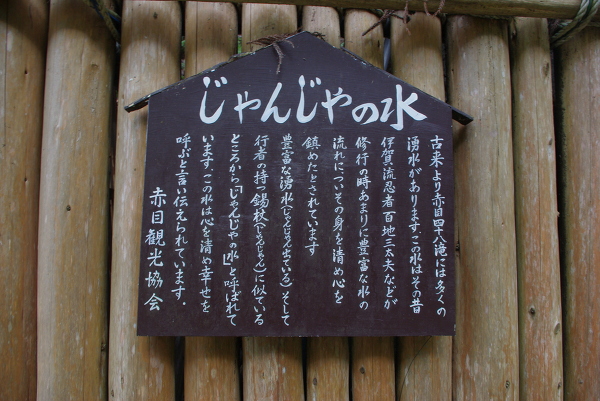 じゃんじゃの水
古来より赤目四十八滝には多くの
湧水があります。この水はその昔
伊賀流忍者百地三太夫などが
修行の時あまりに豊富な水の
流れについその身を清め心を
鎮めたとされています
豊富な湧水(じゃんじゃん出ている)そして
行者の持つ錫杖(じゃんじゃん)に似ている
ところから「じゃんじゃの水」と呼ばれて
います。この水は心を清め幸せを
呼ぶと言い伝えられています。
赤目観光協会